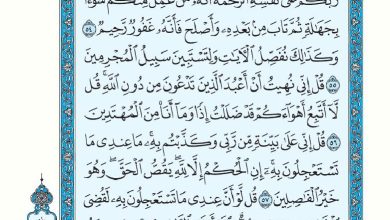 رَبُّكُمْ عَلَىٰ نَفْسِهِ الرَّحْمَةَ أَنَّهُ مَنْ عَمِلَ مِنكُمْ سُوٓءًا
بِجَهَٰلَةٍ ثُمَّ تَابَ مِنۢ بَعْدِهِۦ وَأَصْلَحَ فَأَنَّهُۥ غَفُورٌ رَّحِيمٌ ٥٤
وَكَذَٰلِكَ نُفَصِّلُ ٱلْءَايَٰتِ وَلِتَسْتَبِينَ سَبِيلُ ٱلْمُجْرِمِينَ
٥٥ قُلْ إِنِّى نُهِيتُ أَنْ أَعْبُدَ ٱلَّذِينَ تَدْعُونَ مِن دُونِ ٱللَّهِ قُل
لَّآ أَتَّبِعُ أَهْوَآءَكُمْ قَدْ ضَلَلْتُ إِذًا وَمَآ أَنَا۠ مِنَ ٱلْمُهْتَدِينَ
٥٦ قُلْ إِنِّى عَلَىٰ بَيِّنَةٍ مِّن رَّبِّى وَكَذَّبْتُم بِهِۦ مَا عِندِى مَا
تَسْتَعْجِلُونَ بِهِۦٓ إِنِ ٱلْحُكْمُ إِلَّا لِلَّهِ يَقُصُّ ٱلْحَقَّ وَهُوَ
خَيْرُ ٱلْفَٰصِلِينَ ٥٧ قُل لَّوْ أَنَّ عِندِى مَا تَسْتَعْجِلُونَ بِهِۦ لَقُضِىَ